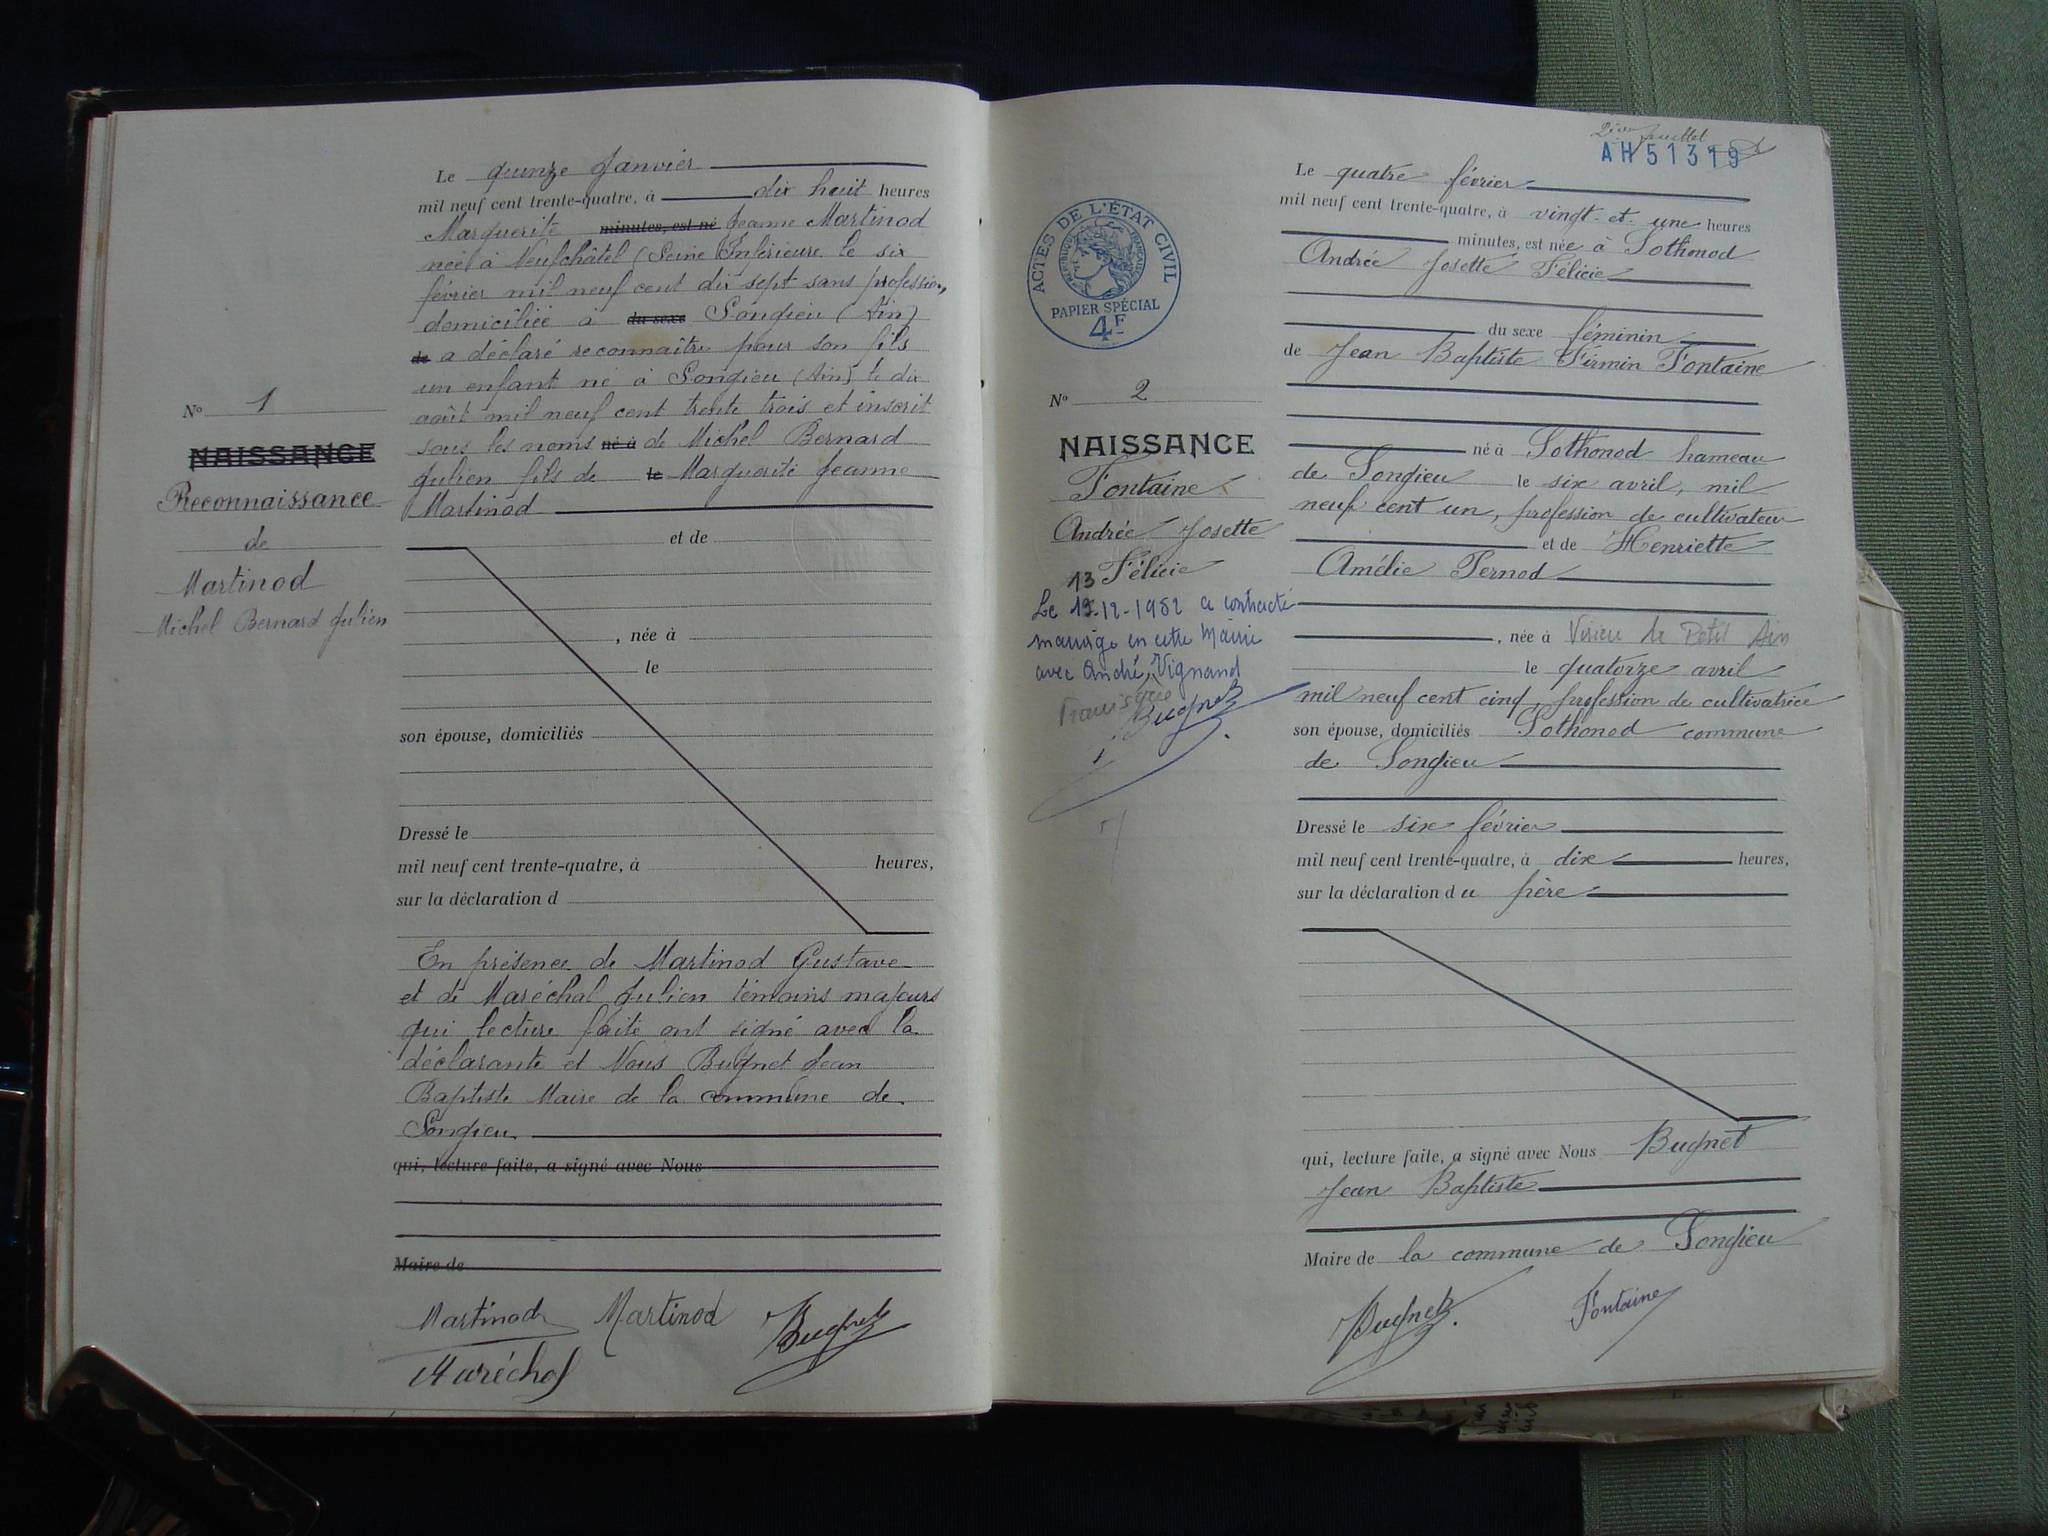 Le quinze Janvier
mil neuf cent trente-quatre, à dix huit heures
Marguerite minutes, est né Jeanne Martinod
née à Neufchâtel (Seine Inférieure le six
février mil neuf cent dix sept sans profession,
domiciliée à du sexe Songieu (Ain)
de a déclaré reconnaître pour son fils
un enfant né à Songieu (Ain) le dix
août mil neuf cent trente trois et inscrit
sous les noms né à de Michel Bernard
Julien fils de le Marguerite Jeanne
Martinod
et de
, née à
le
son épouse, domiciliés
Dressé le
mil neuf cent trente-quatre, à heures,
sur la déclaration d
En présence de Martinod Gustave
et de Maréchal Julien témoins majeurs
qui lecture faite ont signé avec la
déclarante et Nous Bugnet Jean
Baptiste Maire de la commune de
Songieu
qui, lecture faite, a signé avec Nous
Maire de
Martinod Martinod Bugnet
Maréchal
No 1
NAISSANCE
Reconnaissance
de
Martinod
Michel Bernard Julien
2ème feuillet
AH51319
ACTES DE L'ÉTAT CIVIL
RÉPUBLIQUE FRANÇAISE
PAPIER SPÉCIAL
4F
No 2
NAISSANCE
Fontaine
Andrée Josette
Félicie
13
Le 13-12-1952 a contracté
mariage en cette Mairie
avec André, Vignand
Bugnet
Le quatre février
mil neuf cent trente-quatre, à vingt-et-une heures
minutes, est née à Sothonod
Andrée Josette Félicie
du sexe féminin
de Jean Baptiste Firmin Fontaine
né à Sothonod hameau
de Songieu le six avril, mil
neuf cent un, profession de cultivateur
et de Henriette
Amélie Pernod
, née à Virieu le Petit Ain
le quatorze avril
mil neuf cent cinq, profession de cultivatrice
son épouse, domiciliés Sothonod commune
de Songieu
Dressé le six février
mil neuf cent trente-quatre, à dix heures,
sur la déclaration du père
qui, lecture faite, a signé avec Nous Bugnet
Jean Baptiste
Maire de la commune de Songieu
Bugnet Fontaine